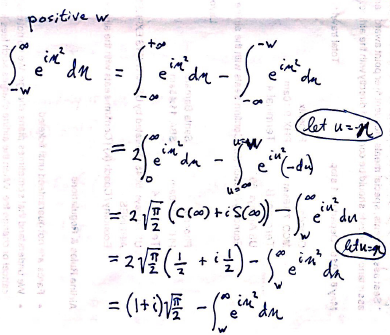 positive w
∫_{-w}^{∞} e^{ix²} dx = ∫_{-∞}^{+∞} e^{ix²} dx - ∫_{-∞}^{-w} e^{ix²} dx
let u=-x
= 2∫_{0}^{∞} e^{ix²} dx - ∫_{u=∞}^{u=w} e^{iu²} (-du)
= 2√(π/2) (C(∞) + i S(∞)) - ∫_{w}^{∞} e^{iu²} du
let u=x
= 2√(π/2) (1/2 + i 1/2) - ∫_{w}^{∞} e^{ix²} dx
= (1+i)√(π/2) - ∫_{w}^{∞} e^{ix²} dx